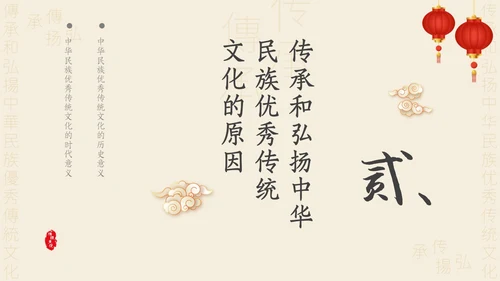 贰、
传承和弘扬中华
民族优秀传统
文化的原因
中华民族优秀传统文化的历史意义
中华民族优秀传统文化的时代意义